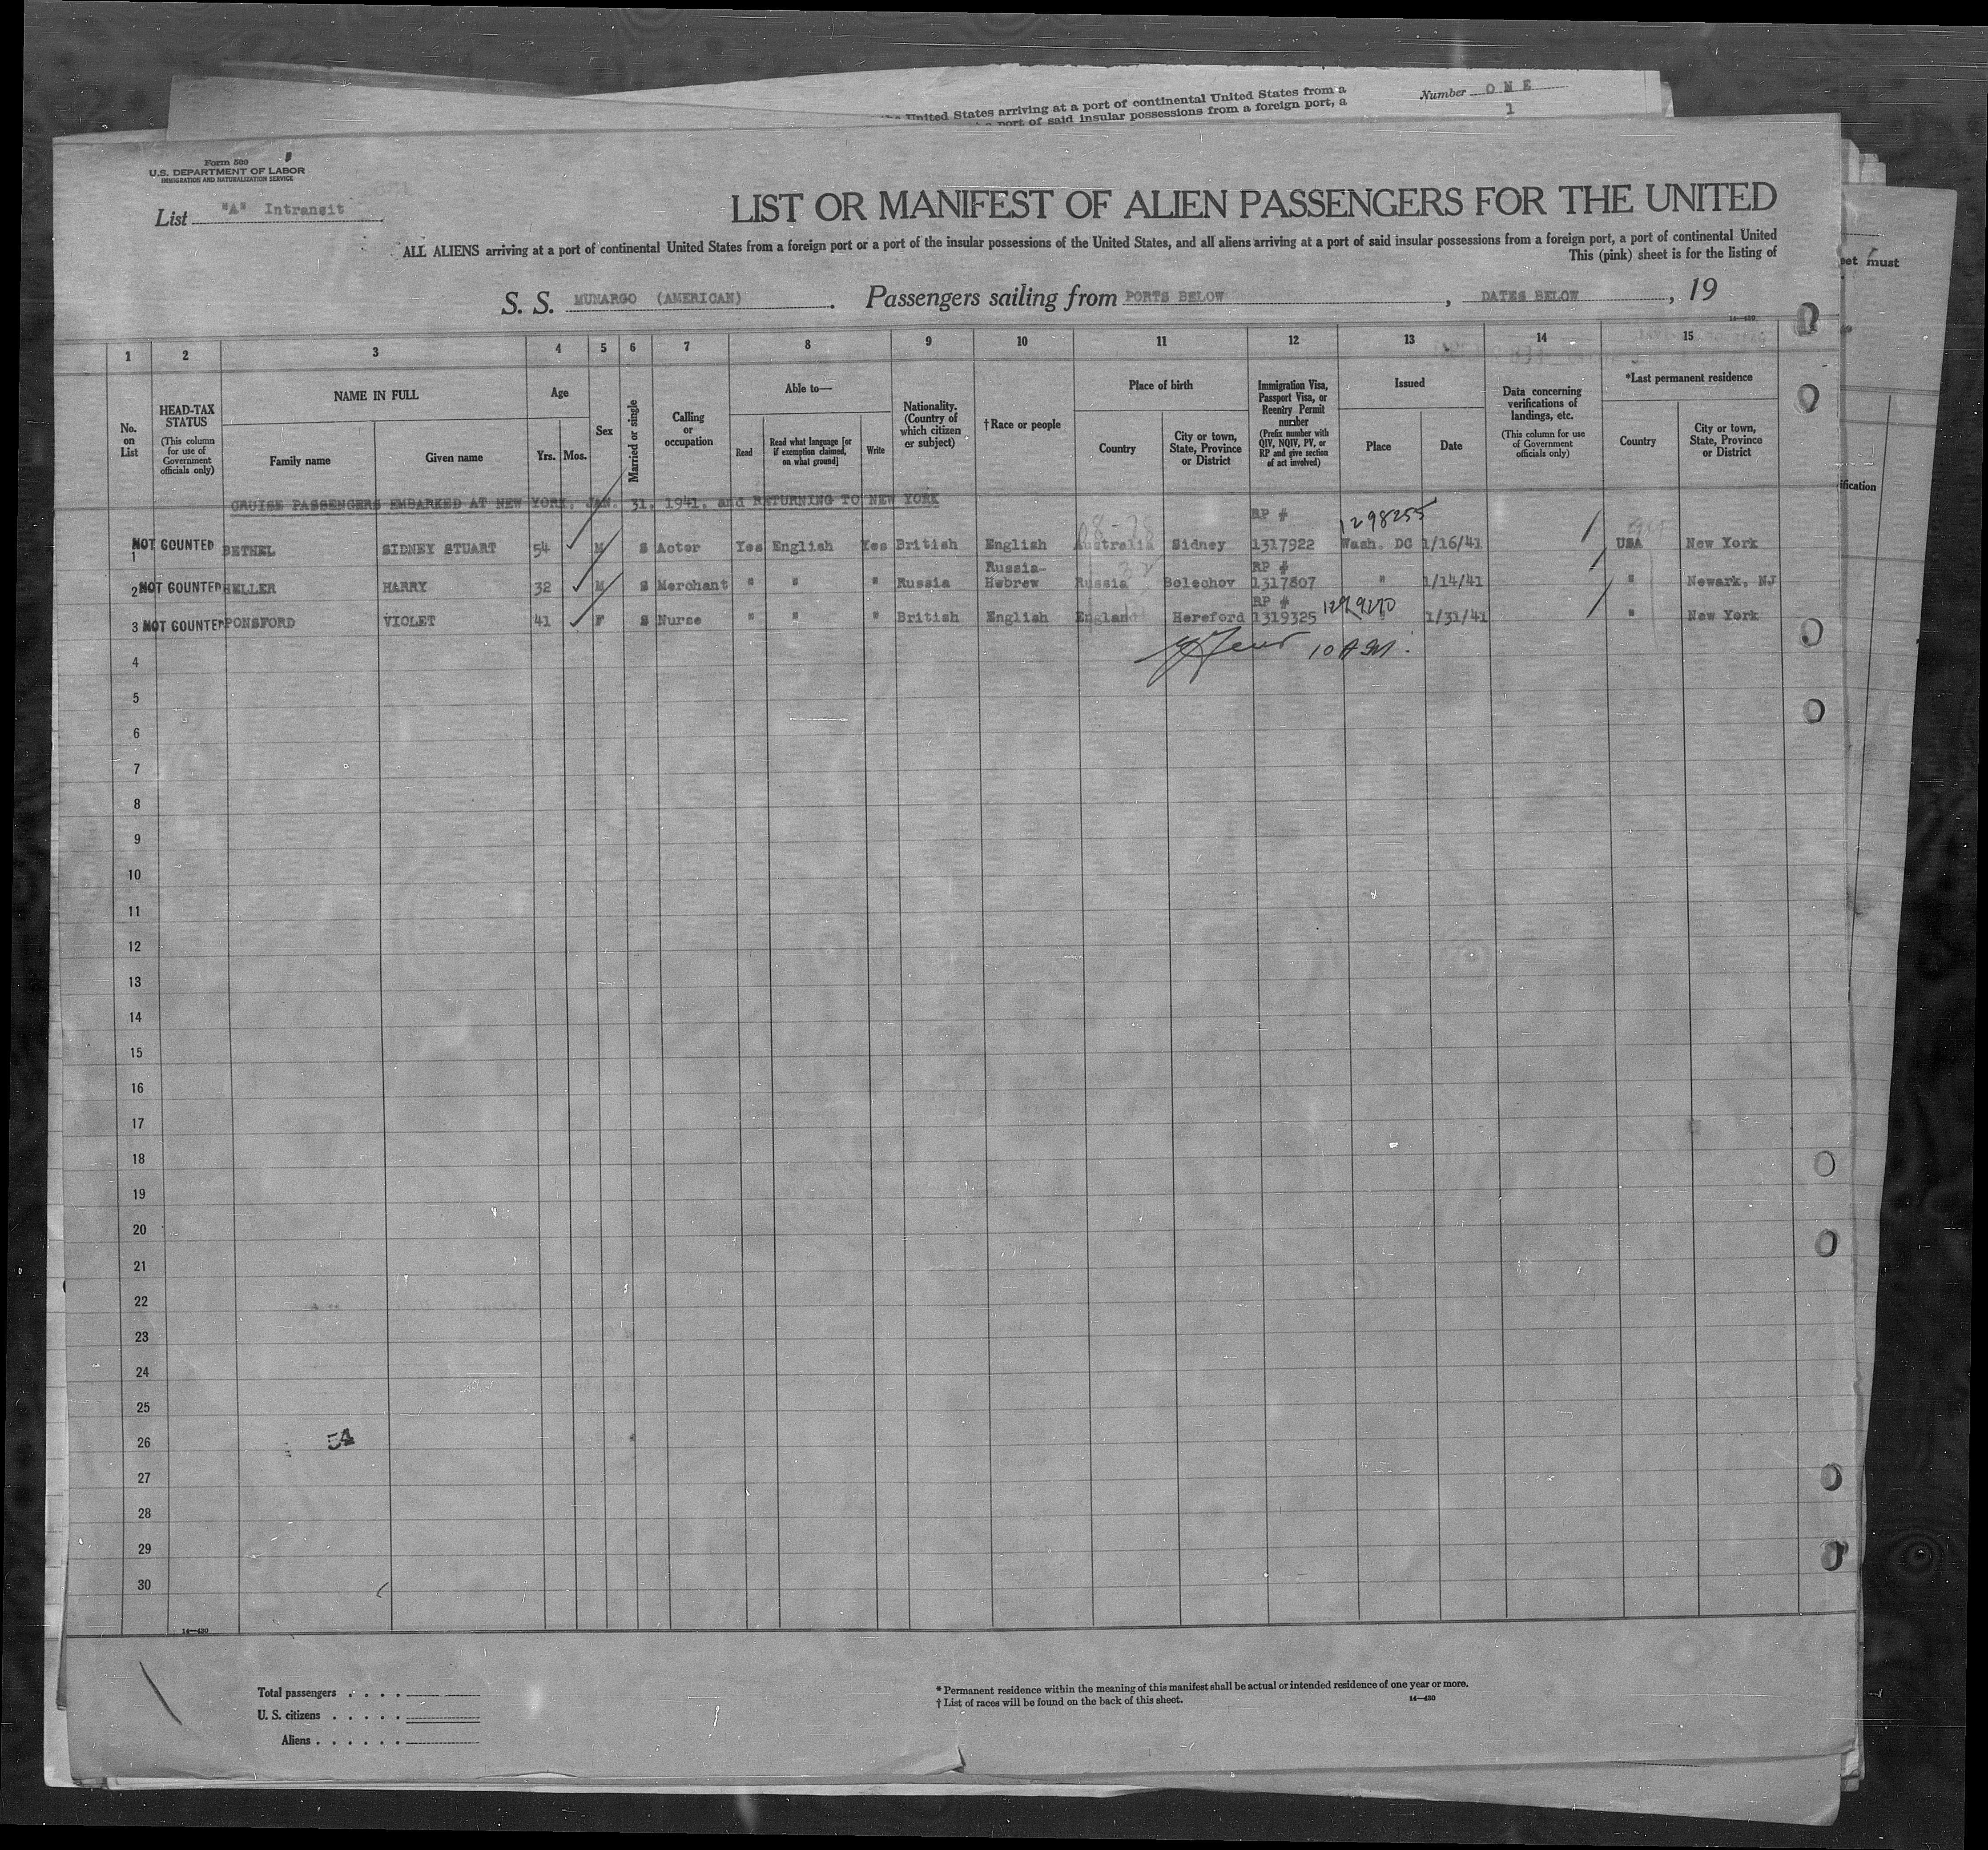 the United States arriving at a port of continental United States from a
a port of said insular possessions from a foreign port, a
Number ONE
1
Form 500
U.S. DEPARTMENT OF LABOR
IMMIGRATION AND NATURALIZATION SERVICE
List "A" Intransit
LIST OR MANIFEST OF ALIEN PASSENGERS FOR THE UNITED
ALL ALIENS arriving at a port of continental United States from a foreign port or a port of the insular possessions of the United States, and all aliens arriving at a port of said insular possessions from a foreign port, a port of continental United
This (pink) sheet is for the listing of
must
S. S. MUNARGO (AMERICAN). Passengers sailing from PORTS BELOW, DATES BELOW, 19
14—430
1 2 3 4 5 6 7 8 9 10 11 12 13 14 15
No. on List
HEAD-TAX STATUS
(This column for use of Government officials only)
NAME IN FULL
Family name
Given name
Age
Yrs. Mos.
Sex
Married or single
Calling or occupation
Able to—
Read
Read what language [or if exemption claimed, on what ground]
Write
Nationality. (Country of which citizen or subject)
†Race or people
Place of birth
Country
City or town, State, Province or District
Immigration Visa, Passport Visa, or Reentry Permit number
(Prefix number with QIV, NQIV, PV, or RP and give section of act involved)
Issued
Place
Date
Data concerning verifications of landings, etc.
(This column for use of Government officials only)
*Last permanent residence
Country
City or town, State, Province or District
CRUISE PASSENGERS EMBARKED AT NEW YORK, JAN. 31, 1941. and RETURNING TO NEW YORK
RP # 1298255
1 NOT COUNTED BETHEL SIDNEY STUART 54 M S Actor Yes English Yes British English Australia Sidney 1317922 Wash. DC 1/16/41 USA New York
Russia- RP #
2 NOT COUNTED HELLER HARRY 32 M S Merchant " " " Russia Hebrew Russia Bolechov 1317807 " 1/14/41 " Newark, NJ
RP #
3 NOT COUNTED PONSFORD VIOLET 41 F S Nurse " " " British English England Hereford 1319325 1/31/41 " New York
4
5
6
7
8
9
10
11
12
13
14
15
16
17
18
19
20
21
22
23
24
25
26 54
27
28
29
30
14—430
Total passengers . . . .
U. S. citizens . . . . .
Aliens . . . . . .
* Permanent residence within the meaning of this manifest shall be actual or intended residence of one year or more.
† List of races will be found on the back of this sheet.
14—430